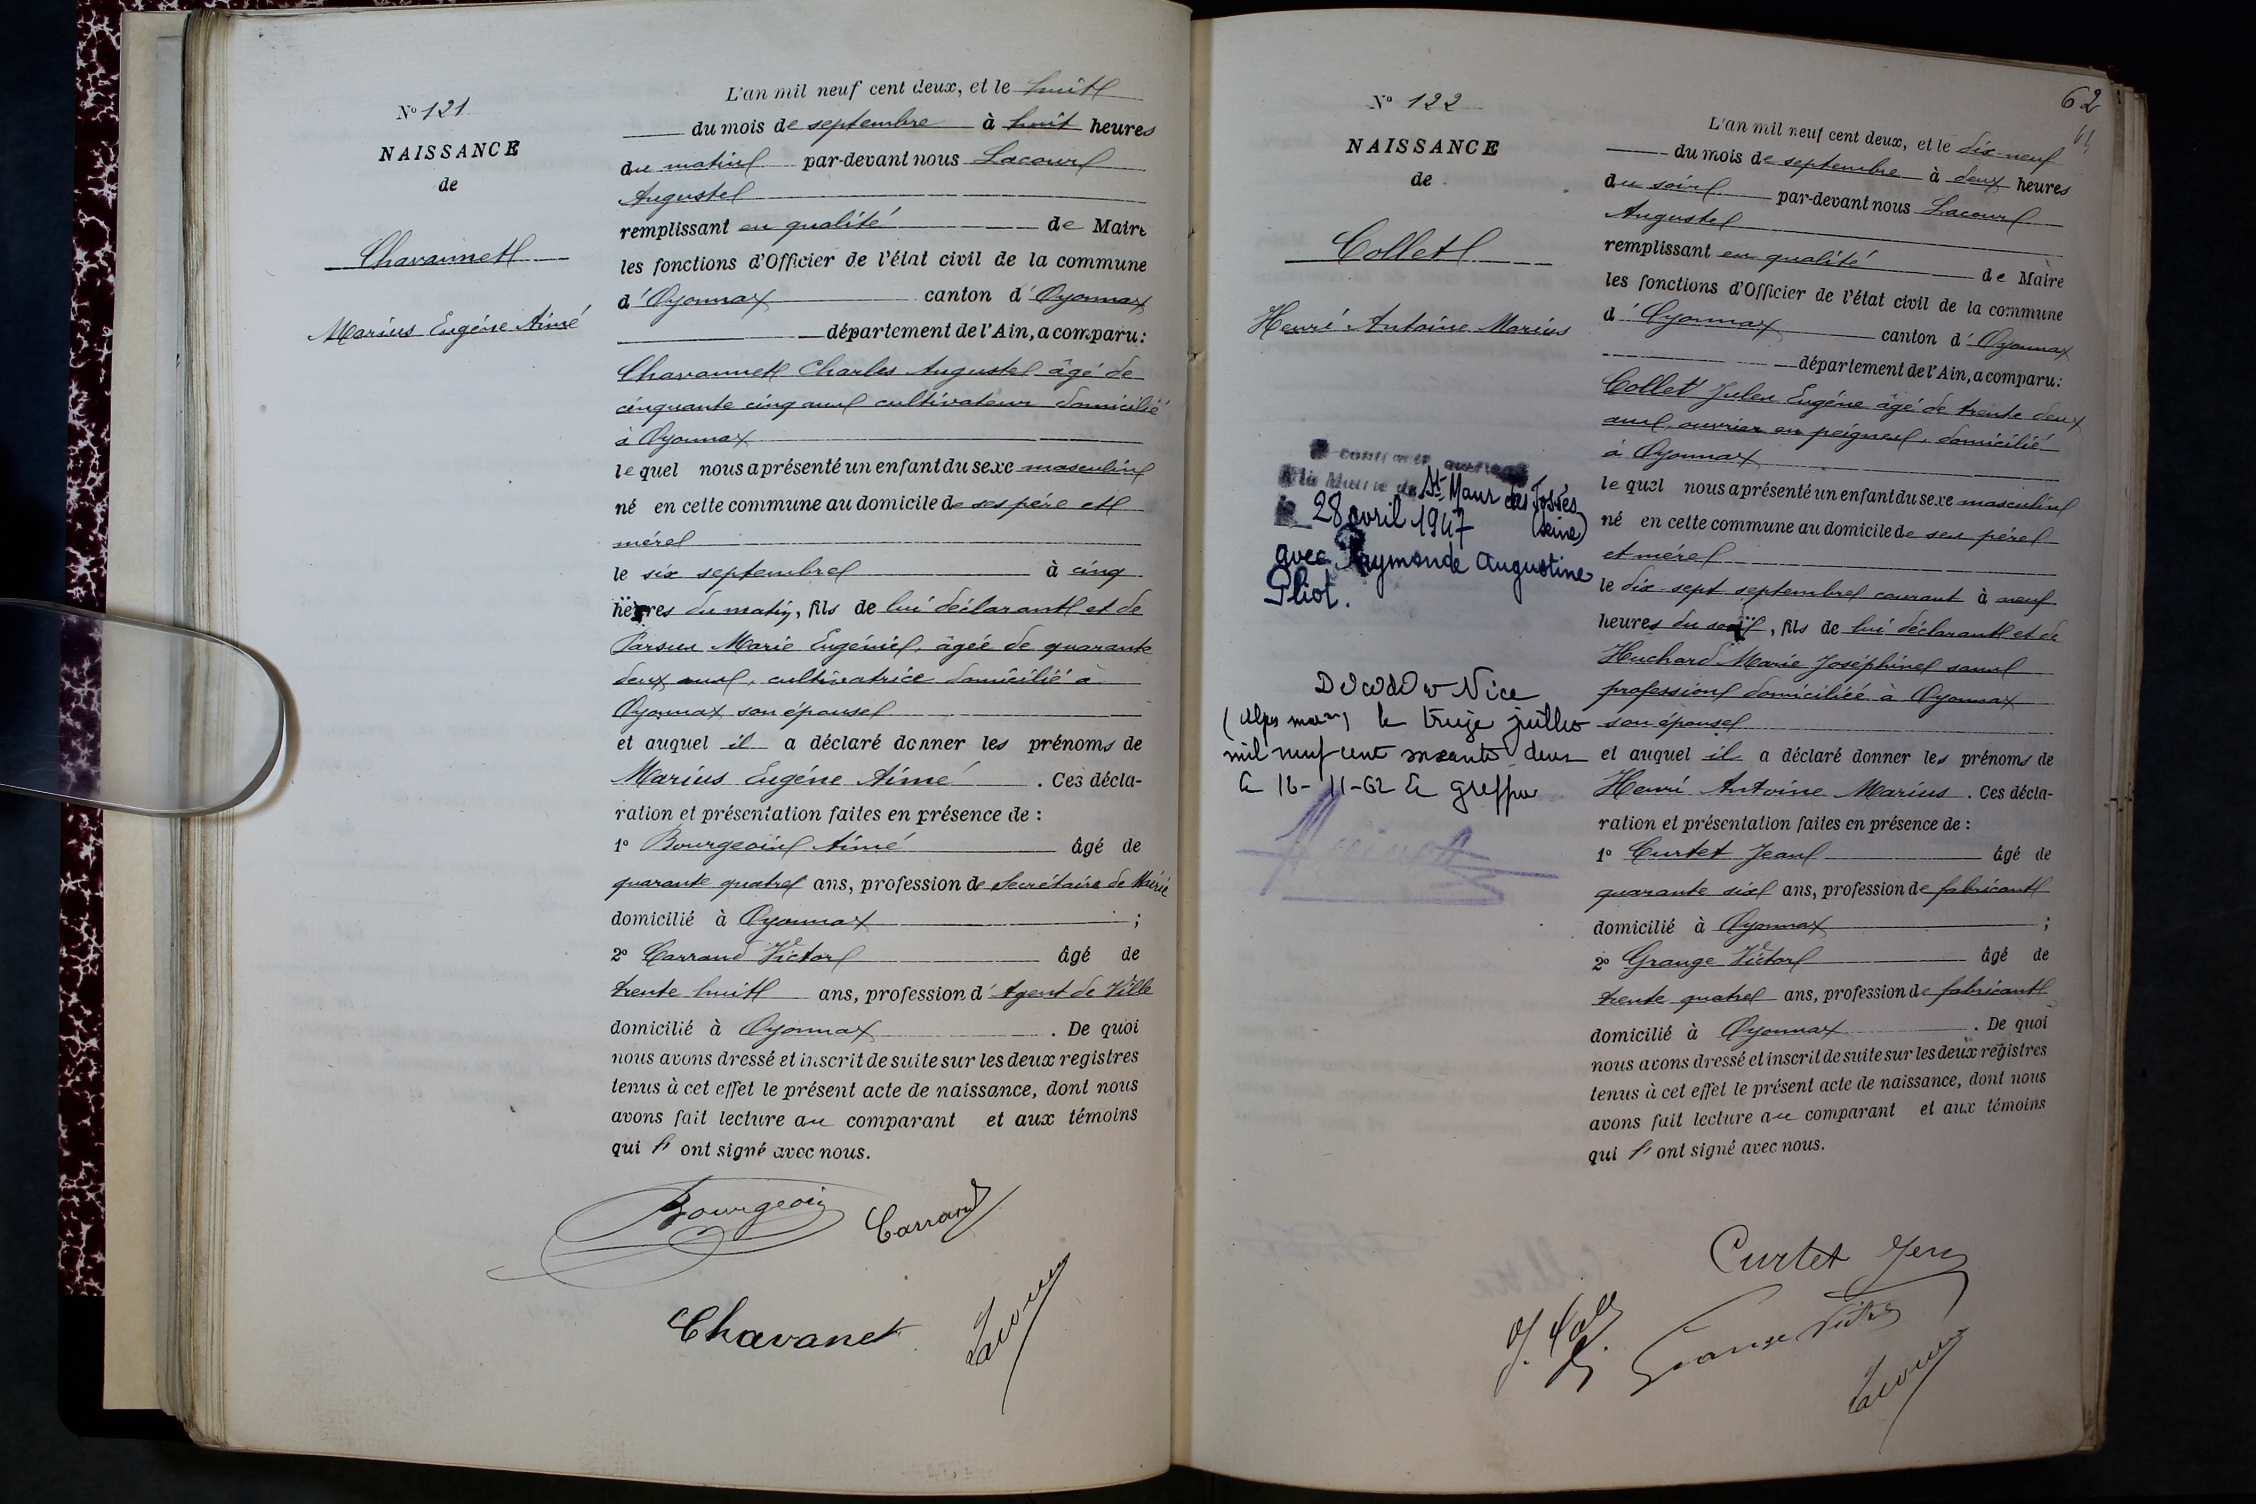 N° 121
NAISSANCE
de
Chavannet
Marius Eugène Aimé
L'an mil neuf cent deux, et le huit
du mois de septembre à huit heures
du matin par-devant nous Lacour
Auguste
remplissant en qualité de Maire
les fonctions d'Officier de l'état civil de la commune
d'Oyonnax canton d'Oyonnax
département de l'Ain, a comparu :
Chavannet Charles Auguste âgé de
cinquante cinq ans cultivateur domicilié
à Oyonnax
lequel nous a présenté un enfant du sexe masculin
né en cette commune au domicile de ses père et
mère
le six septembre à cinq
heures du matin, fils de lui déclarant et de
Marie Eugénie, âgée de quarante
deux ans, cultivatrice domicilié à
Oyonnax son épouse
et auquel il a déclaré donner les prénoms de
Marius Eugène Aimé. Ces décla-
ration et présentation faites en présence de :
1° Bourgeoin Aimé âgé de
quarante quatre ans, profession de Secrétaire de Mairie
domicilié à Oyonnax ;
2° Carrand Victor âgé de
trente huit ans, profession d'Agent de Ville
domicilié à Oyonnax. De quoi
nous avons dressé et inscrit de suite sur les deux registres
tenus à cet effet le présent acte de naissance, dont nous
avons fait lecture au comparant et aux témoins
qui l'ont signé avec nous.
Bourgeoin Carrand
Chavanet Lacour
62
61
N° 122
NAISSANCE
de
Collet
Henri Antoine Marius
à la Mairie de St Maur des Fossés
le 28 avril 1947 (Seine)
avec Raymonde Augustine
Pliot.
Décédé à Nice
(Alpes mar mes) le treize juillet
mil neuf cent soixante deux
Le 16-11-62 Le greffier
L'an mil neuf cent deux, et le dix-neuf
du mois de septembre à deux heures
du soir par-devant nous Lacour
Auguste
remplissant en qualité de Maire
les fonctions d'Officier de l'état civil de la commune
d'Oyonnax canton d'Oyonnax
département de l'Ain, a comparu :
Collet Jules Eugène âgé de trente deux
ans, ouvrier en peignes, domicilié
à Oyonnax
lequel nous a présenté un enfant du sexe masculin
né en cette commune au domicile de ses père
et mère
le dix sept septembre courant à neuf
heures du soir, fils de lui déclarant et de
Huchard Marie Joséphine sans
profession domiciliée à Oyonnax
son épouse
et auquel il a déclaré donner les prénoms de
Henri Antoine Marius. Ces décla-
ration et présentation faites en présence de :
1° Curtet Jean âgé de
quarante six ans, profession de fabricant
domicilié à Oyonnax ;
2° Grange Victor âgé de
trente quatre ans, profession de fabricant
domicilié à Oyonnax. De quoi
nous avons dressé et inscrit de suite sur les deux registres
tenus à cet effet le présent acte de naissance, dont nous
avons fait lecture au comparant et aux témoins
qui l'ont signé avec nous.
Curtet Jean
Grange Victor
Lacour